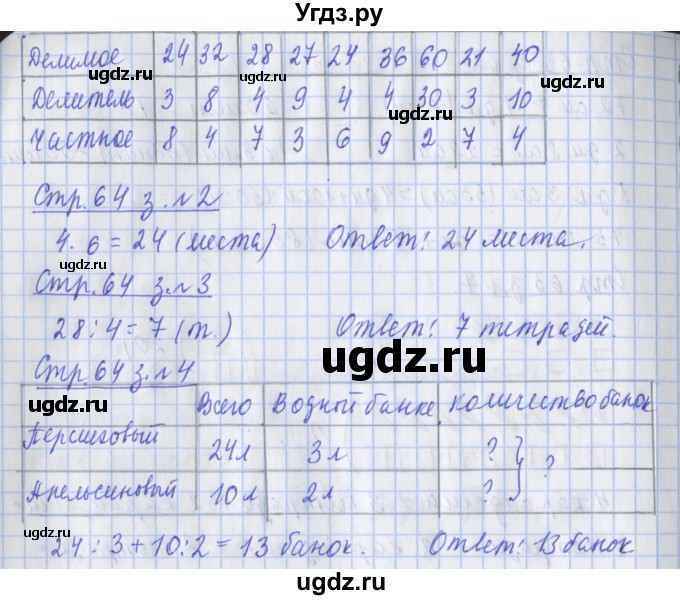 Угдз.ру
Делимое 24 32 28 27 24 36 60 21 40
ugdz.ru ugdz.ru ugdz.ru ugdz.ru
Делитель 3 8 4 9 4 4 30 3 10
ugdz.ru
Частное 8 4 7 3 6 9 2 7 4
Стр. 64 з. №2
4 · 6 = 24 (места) Ответ: 24 места.
ugdz.ru ugdz.ru
Стр. 64 з. №3
28 : 4 = 7 (т.) Ответ: 7 тетрадей.
ugdz.ru ugdz.ru
Стр. 64 з. №4
ugdz.ru
Всего В одной банке Количество банок
Персиговый 24л 3л ? } ?
Апельсиновый 10л 2л ?
ugdz.ru ugdz.ru ugdz.ru
24 : 3 + 10 : 2 = 13 банок. Ответ: 13 банок
ugdz.ru